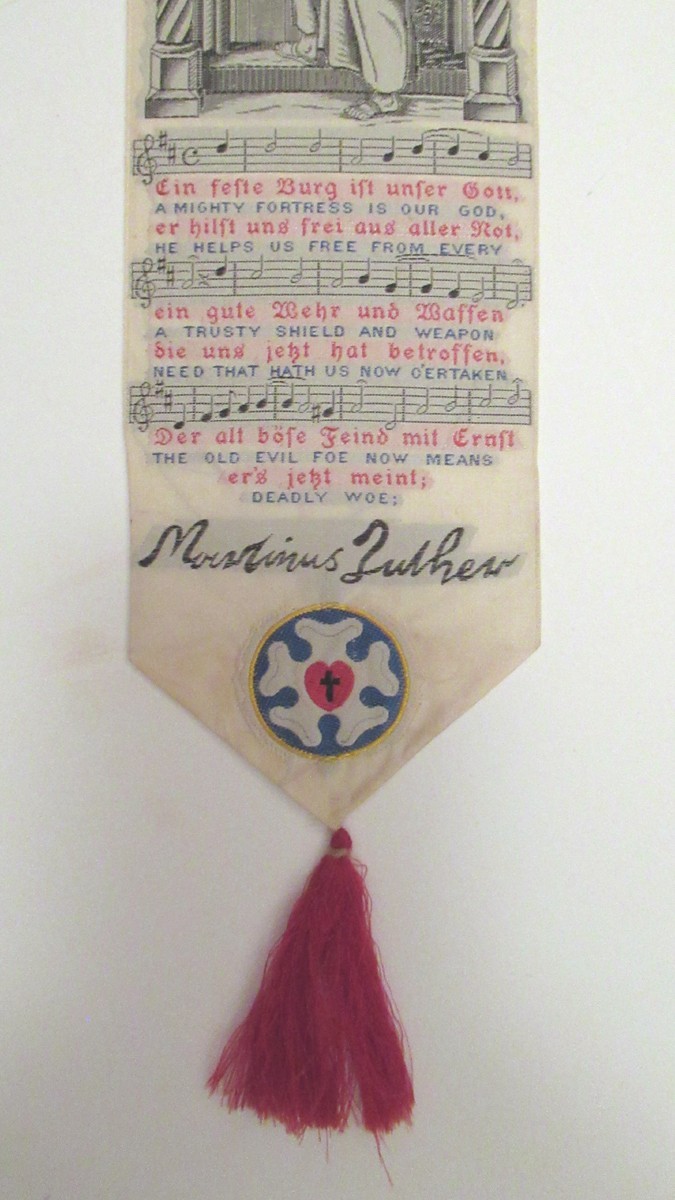 Ein feste Burg ist unser Gott,
A MIGHTY FORTRESS IS OUR GOD,
er hilft uns frei aus aller Not,
HE HELPS US FREE FROM EVERY
ein gute Wehr und Waffen
A TRUSTY SHIELD AND WEAPON
die uns jetzt hat betroffen,
NEED THAT HATH US NOW O'ERTAKEN
Der alt böse Feind mit Ernst
THE OLD EVIL FOE NOW MEANS
er's jetzt meint;
DEADLY WOE;
Martinus Luther